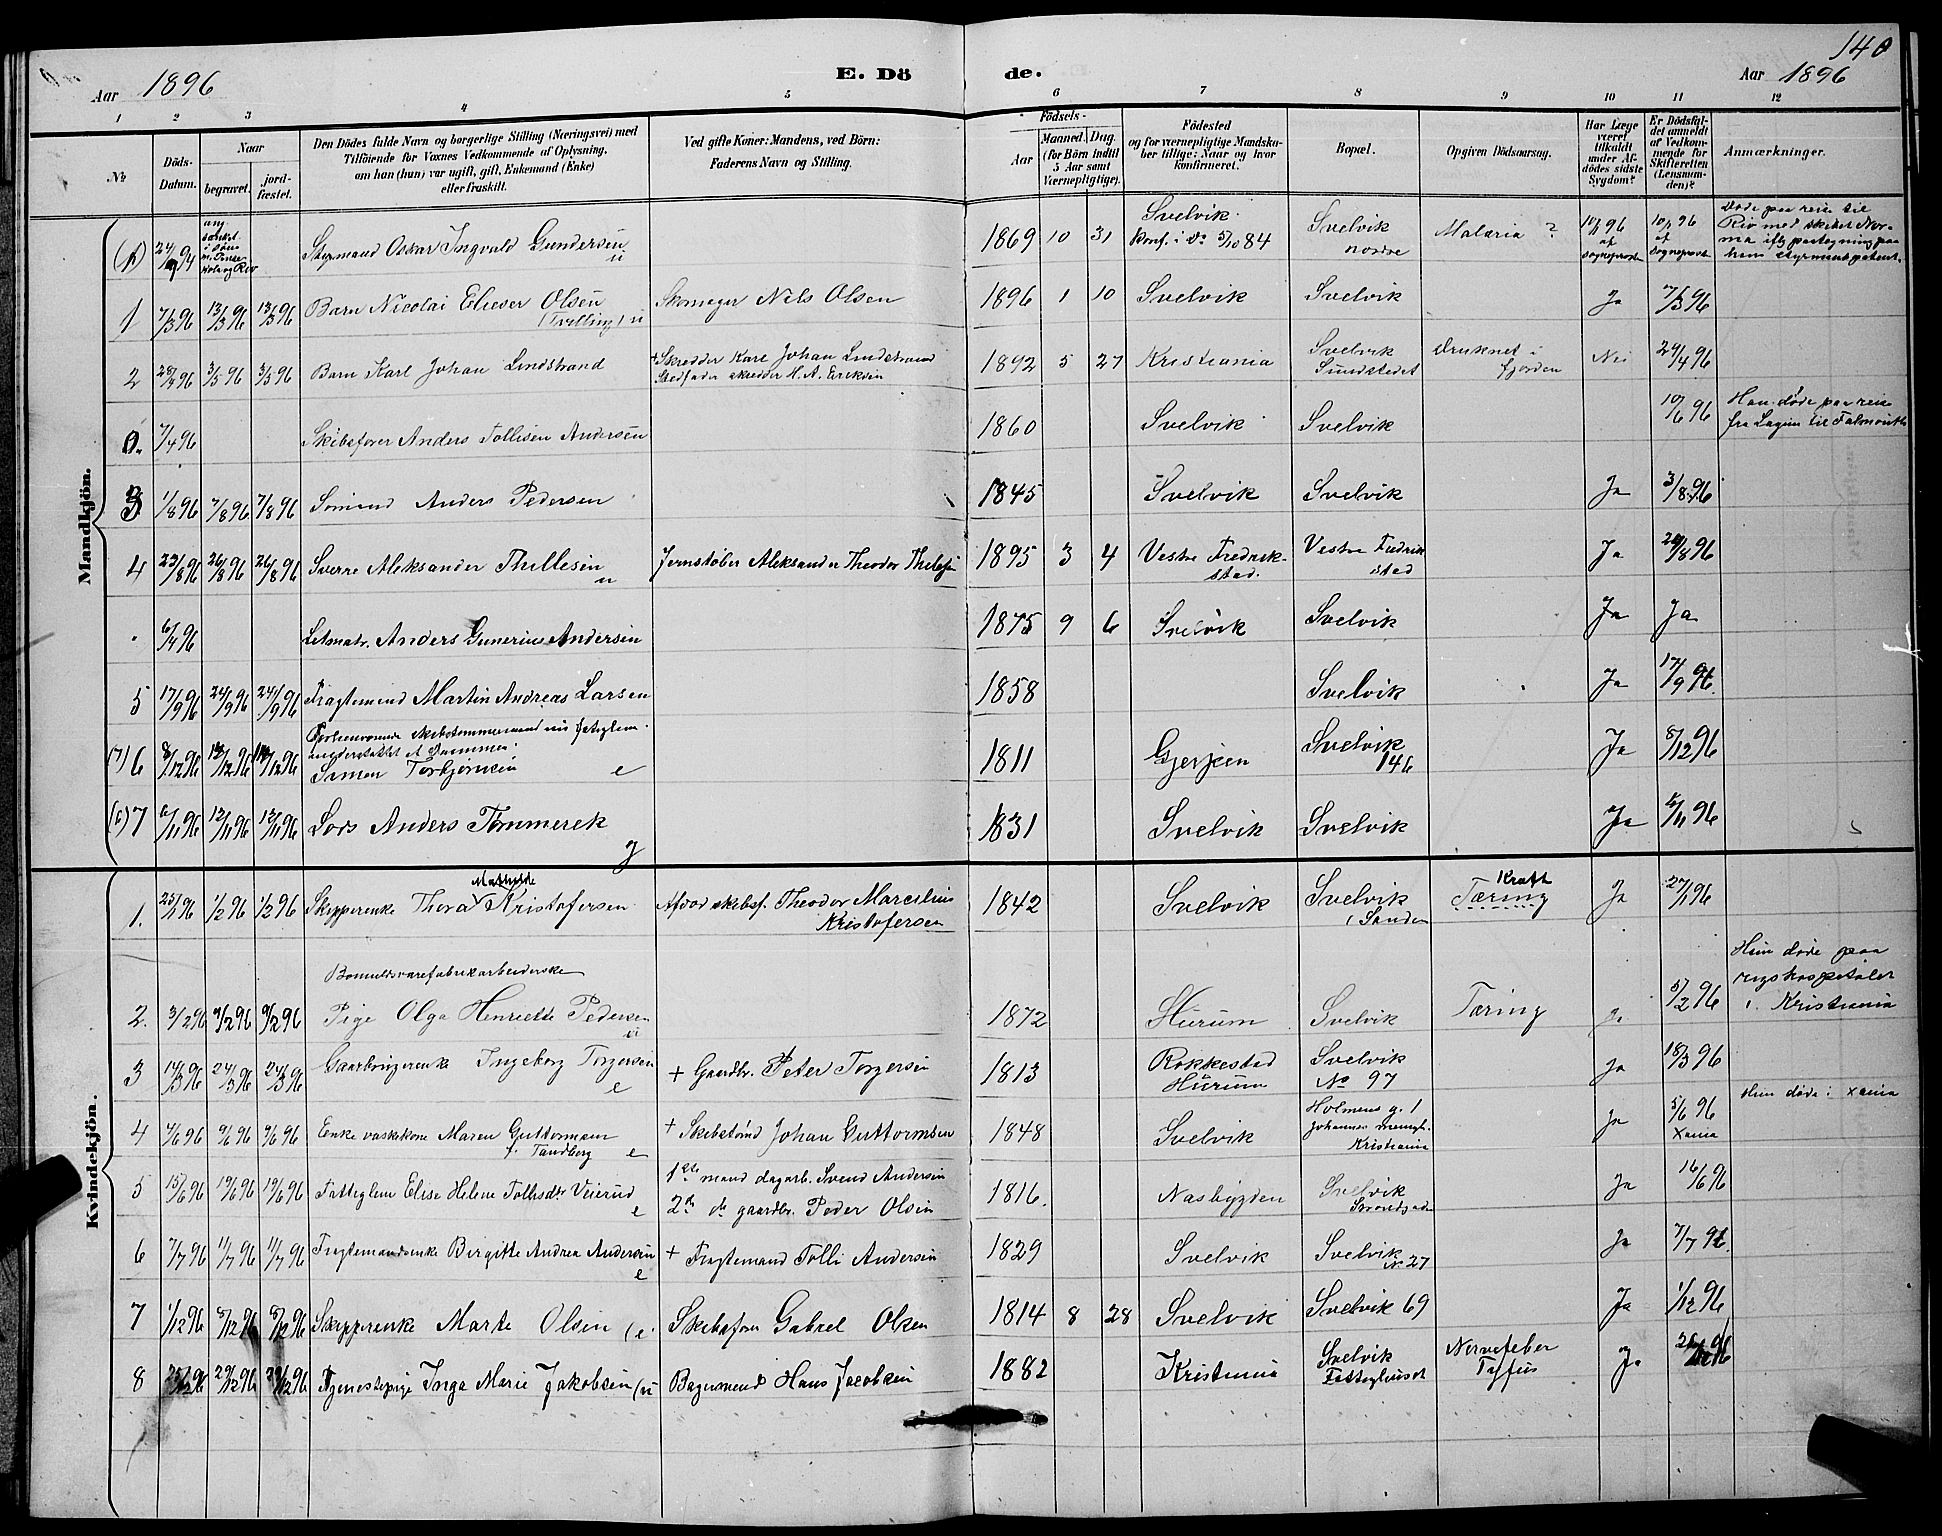 140
Aar 1896 E. Dö de. Aar 1896
1 2 3 4 5 6 7 8 9 10 11 12
No
Döds-Datum.
Naar
begravet.
jord-fæstet.
Den Dödes fulde Navn og borgerlige Stilling (Næringsvei) med
Tilföiende for Voxnes Vedkommende af Oplysning,
om han (hun) var ugift, gift, Enkemand (Enke)
eller fraskilt.
Ved gifte Koner: Mandens, ved Börn:
Faderens Navn og Stilling.
Födsels-
Aar
Maaned. Dag.
(for Börn indtil
5 Aar samt
Værnepligtige).
Födested
og for værnepligtige Mandska-
ber tillige: Naar og hvor
konfirmeret.
Bopæl.
Opgiven Dödsaarsag.
Har Læge
været
tilkaldt
under Af-
dödes sidste
Sygdom?
Er Dödsfal-
det anmeldt
af Vedkom-
mende for
Skifteretten
(Lensman-
den)?
Anmærkninger.
Mandkjön.
24/9 94 Styrmand Oskar Ingvald Gundersen u 1869 10 31 Svelvik konf. i do 5/10 84 Svelvik nordre Malaria ? 10/1 96 af sogneprest 10/1 96 af sogneprest Døde paa reise til Rio med skibet Norma iflg paategning paa hans styrmandspatent.
1 7/3 96 13/3 96 13/3 96 Barn Nicolai Elieser Olsen (Tvilling) u Skomager Nels Olsen 1896 1 10 Svelvik Svelvik Ja 7/3 96
2 28/4 96 3/5 96 3/5 96 Barn Karl Johan Lindstrand + Skredder Karl Johan Lindstrand Stedfader skredder H. A. Eriksen 1892 5 27 Kristiania Svelvik Sundstedet Druknet i fjorden Nei 29/4 96
0. 7/4 96 Skibsfører Anders Tollisen Andersen 1860 Svelvik Svelvik 10/6 96 Han døde paa reise fra Laguna til Falmouth
3 1/8 96 7/8 96 7/8 96 Sømand Anders Pedersen 1845 Svelvik Svelvik Ja 3/8 96
4 23/8 96 26/8 96 26/8 96 Sverre Aleksander Thillesen u Jernstøber Aleksander Theodor 1895 3 4 Vestre Fredrikstad. Vestre Fredrikstad Ja 24/8 96
6/4 96 Letmatr. Anders Gunerius Andersen 1875 9 6 Svelvik Svelvik Ja Ja
5 17/9 96 24/9 96 24/9 96 Fragtemand Martin Andreas Larsen 1858 Svelvik Ja 17/9 96.
(7) 6 8/12 96 12/12 96 12/12 96 Simen Torbjørnsen e 1811 Gjerpen Svelvik 146 Ja 8/12 96
(6) 7 6/11 96 12/11 96 12/11 96 Lods Anders Tømmerek g 1831 Svelvik Svelvik Ja 6/11 96
Kvindekjön.
1. 25/1 96 1/2 96 1/2 96 Skipperenke Thora Mathilde Kristofersen Afdød skibsf. Theodor Marcelius Kristofersen 1842 Svelvik Svelvik (Sanden Kræft Tæring Ja 27/1 96
2. 3/2 96 9/2 96 9/2 96 Bomuldsvarefabrikarbeiderske Pige Olga Henriette Pedersen u 1872 Hurum Svelvik Tæring Ja 5/2 96 Hun døde paa rigshospitalet i Kristiania
3 17/3 96 24/3 96 24/3 96 Gaardbrugerenke Ingeborg Torgersen e + Gaardbr. Peter Torgersen 1813 Rakkestad Hurum Svelvik No 97 Ja 18/3 96
4 4/6 96 9/6 96 9/6 96 Enke vaskekone Maren Guttormsen f. Tandberg e + Skibstømd Johan Guttormsen 1848 Svelvik Holmens g. 1 Johannes menigh. Kristiania Ja 5/6 96 Xania Hun døde i Xania
5 15/6 96 19/6 96 19/6 96 Fattiglem Elise Helene Tollisdtr Veierud e 1ste mand dagarb. Svend Andersen 2de do gaardbr. Peder Olsen 1816. Nasbygden Svelvik Ja 16/6 96
6 7/7 96 11/7 96 11/7 96 Fragtemandsenke Birgitte Andrea Andersen e + Fragtemand Tolli Andersen 1829 Svelvik Svelvik No 27 Ja 7/7 96.
7 1/12 96 8/12 96 8/12 96 Skipperenke Marte Olsen (e. Skibsfører Gabriel Olsen 1814 8 28 Svelvik Svelvik 69 Ja 1/12 96
8 25/12 96 29/12 96 29/12 96 Tjenestepige Inga Marie Jakobsen (u Bagermand Hans Jacobsen 1882 Kristiania Svelvik Fattighuset Nervefeber Tyfus Ja 96